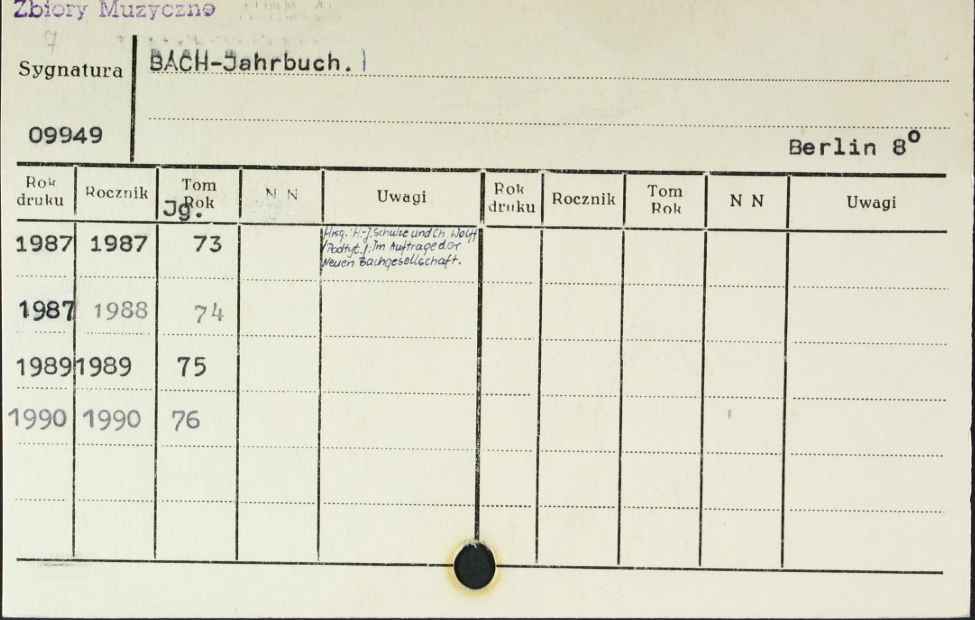 Zbiory Muzyczne
Sygnatura
BACH-Jahrbuch.
09949
Berlin 8°
Rok druku Rocznik Tom Rok N N Uwagi Rok druku Rocznik Tom Rok N N Uwagi
Jg.
1987 1987 73 Hrsg. H.-J. Schulze und Ch. Wolff
/Podtyt./: Im Auftrage der
Neuen Bachgesellschaft.
1987 1988 74
1989 1989 75
1990 1990 76